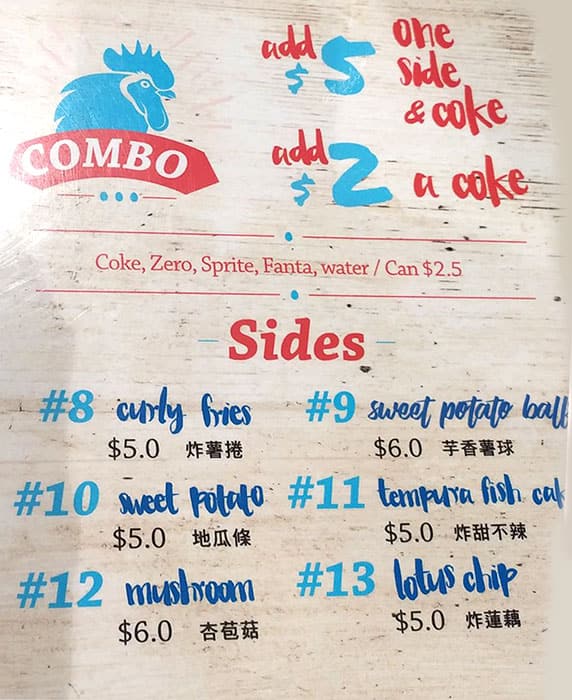 COMBO
add $5 one side & coke
add $2 a coke
Coke, Zero, Sprite, Fanta, water / Can $2.5
Sides
#8 curly fries
$5.0 炸薯捲
#9 sweet potato ball
$6.0 芋香薯球
#10 sweet potato
$5.0 地瓜條
#11 tempura fish cak
$5.0 炸甜不辣
#12 mushroom
$6.0 杏苞菇
#13 lotus chip
$5.0 炸蓮藕